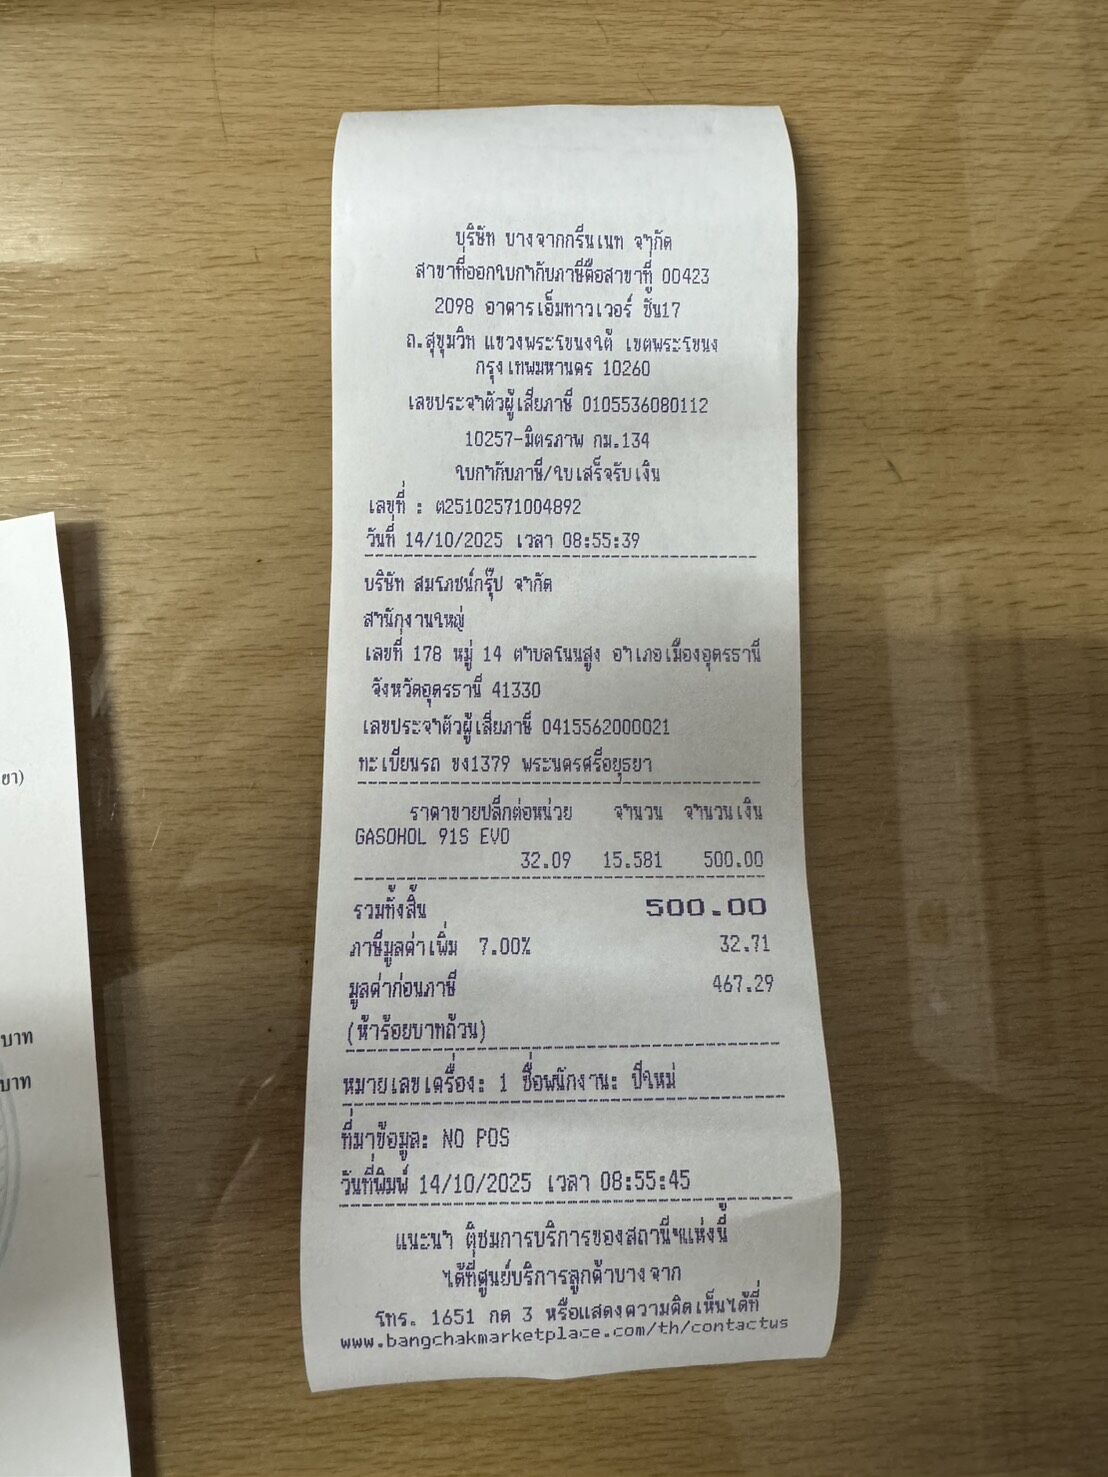 บริษัท บางจากกรีนเนท จำกัด
สาขาที่ออกใบกำกับภาษีคือสาขาที่ 00423
2098 อาคารเอ็มทาวเวอร์ ชั้น17
ถ.สุขุมวิท แขวงพระโขนงใต้ เขตพระโขนง
กรุงเทพมหานคร 10260
เลขประจำตัวผู้เสียภาษี 0105536080112
10257-มิตรภาพ กม.134
ใบกำกับภาษี/ใบเสร็จรับเงิน
เลขที่ : ต25102571004892
วันที่ 14/10/2025 เวลา 08:55:39
บริษัท สมโภชน์กรุ๊ป จำกัด
สำนักงานใหญ่
เลขที่ 178 หมู่ 14 ตำบลโนนสูง อำเภอเมืองอุดรธานี
จังหวัดอุดรธานี 41330
เลขประจำตัวผู้เสียภาษี 0415562000021
ทะเบียนรถ ขง1379 พระนครศรีอยุธยา
ราคาขายปลีกต่อหน่วย จำนวน จำนวนเงิน
GASOHOL 91S EVO
32.09 15.581 500.00
รวมทั้งสิ้น 500.00
ภาษีมูลค่าเพิ่ม 7.00% 32.71
มูลค่าก่อนภาษี 467.29
(ห้าร้อยบาทถ้วน)
หมายเลขเครื่อง: 1 ชื่อพนักงาน: ปีใหม่
ที่มาข้อมูล: NO POS
วันที่พิมพ์ 14/10/2025 เวลา 08:55:45
แนะนำ ติชมการบริการของสถานีฯแห่งนี้
ได้ที่ศูนย์บริการลูกค้าบางจาก
โทร. 1651 กด 3 หรือแสดงความคิดเห็นได้ที่
www.bangchakmarketplace.com/th/contactus
ยา)
บาท
บาท